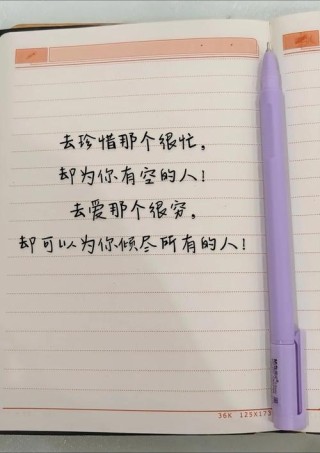 去珍惜那个很忙，
却为你有空的人！
去爱那个很穷，
却可以为你倾尽所有的人！
36K 125X172